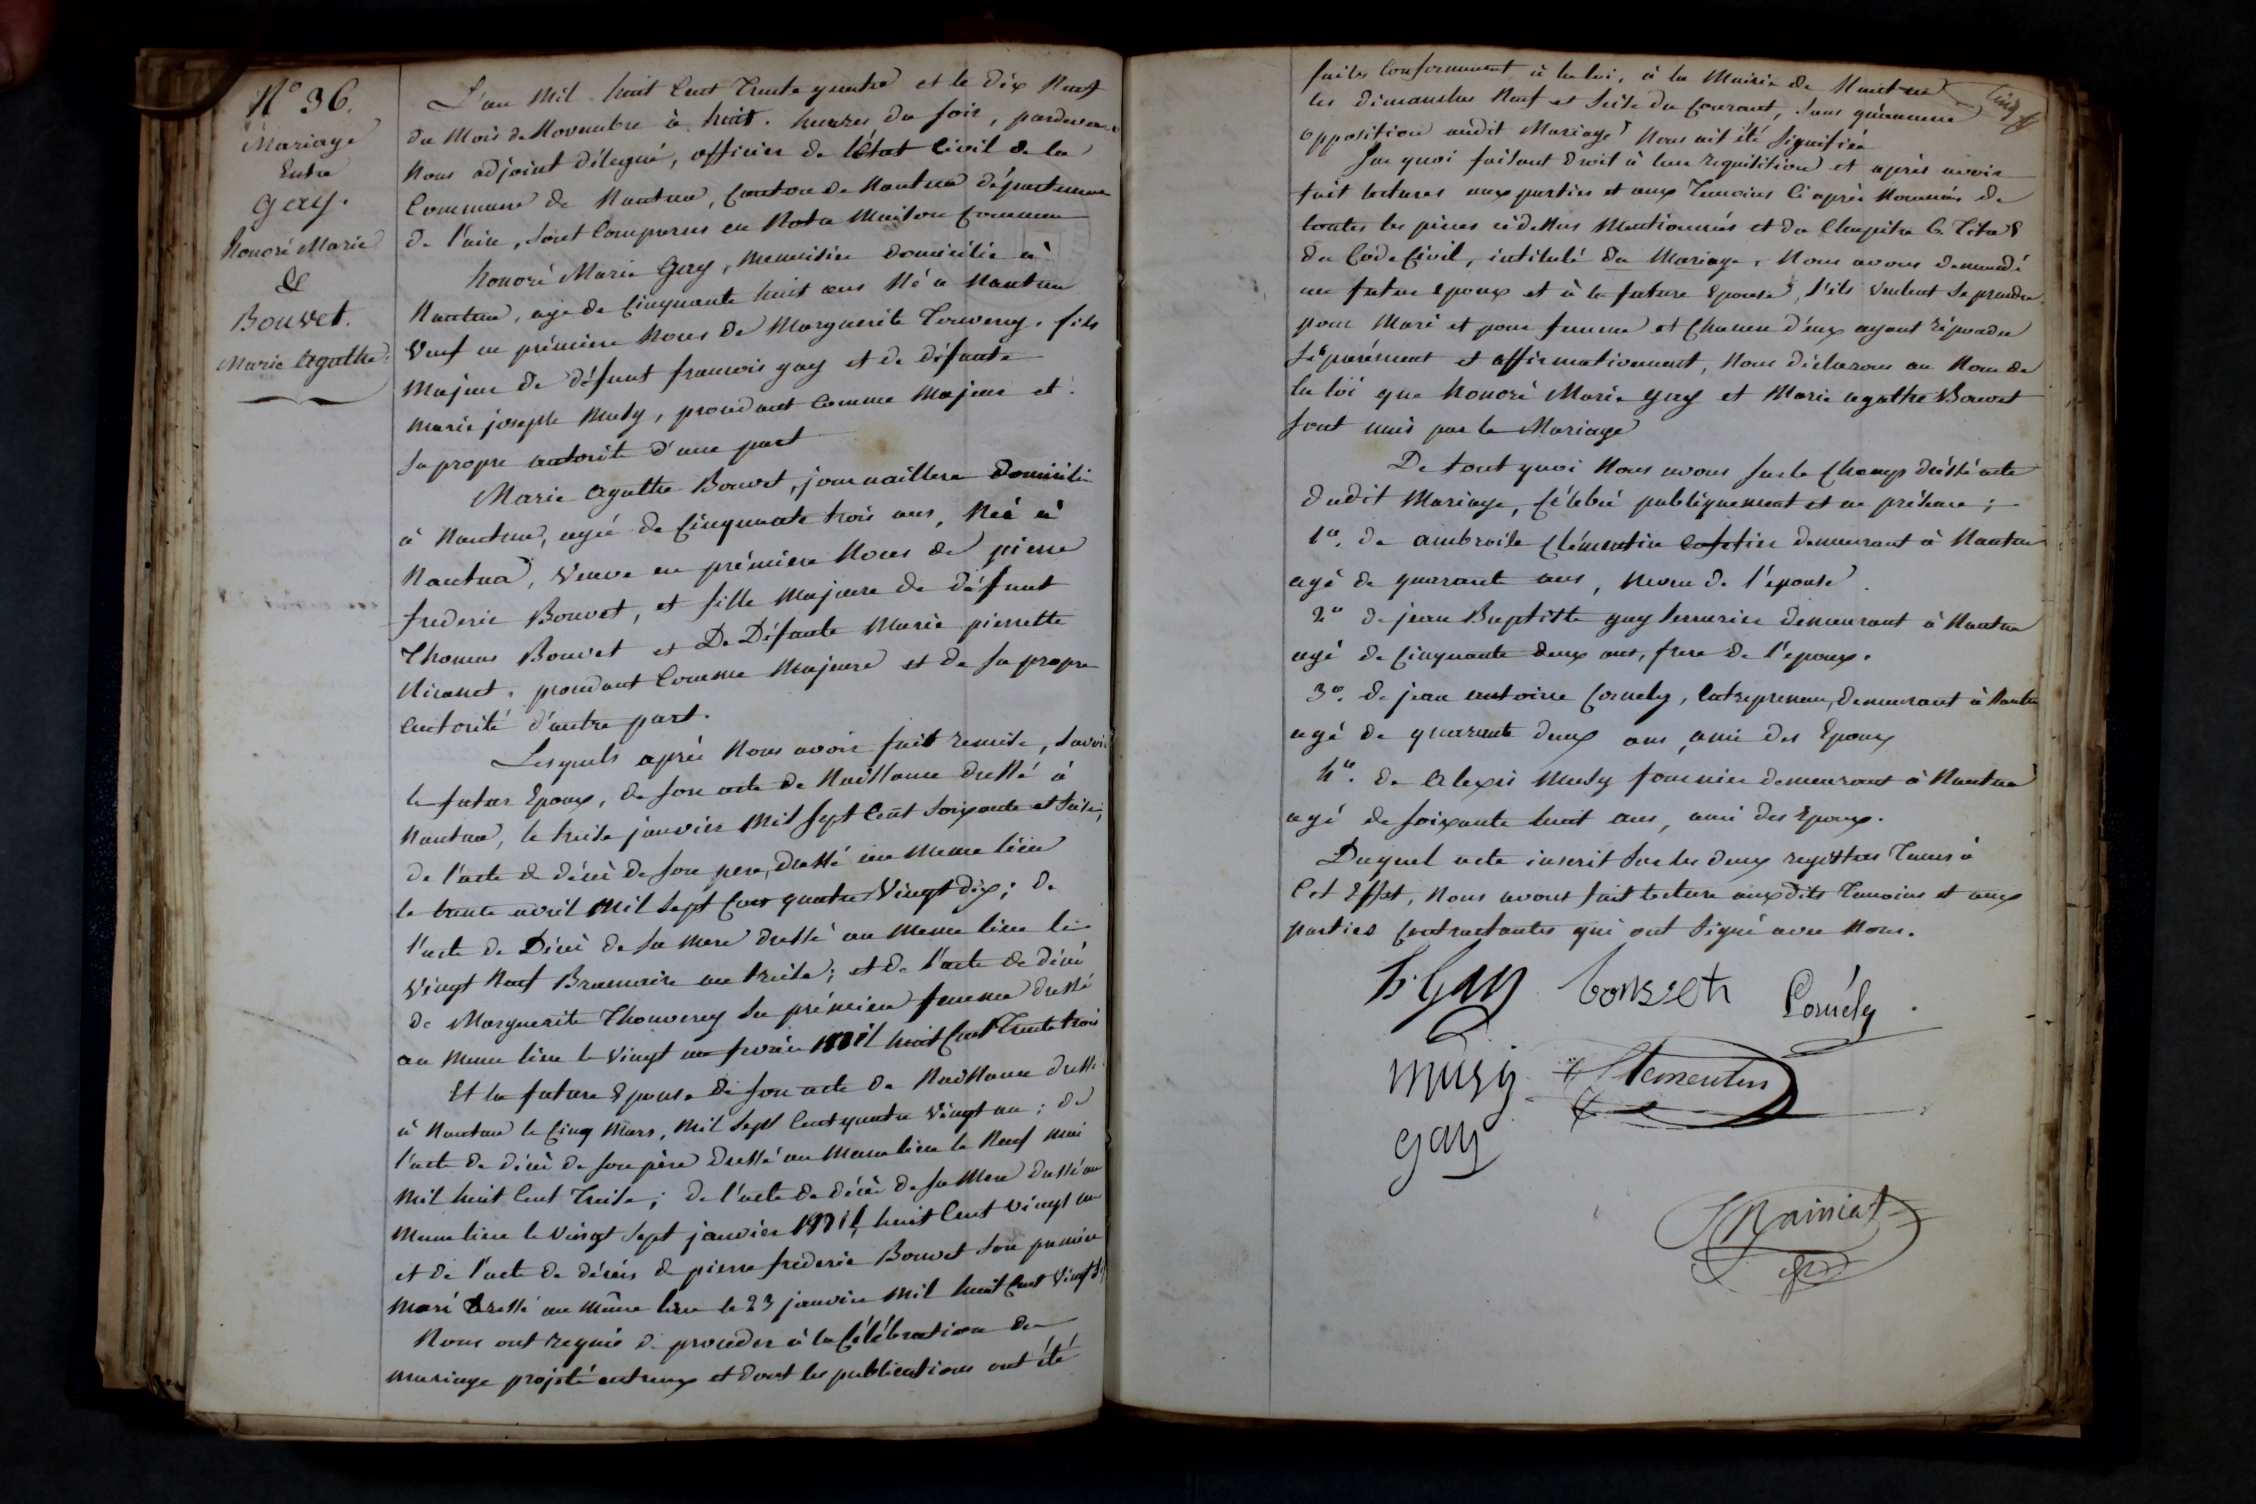 N° 36.
Mariage
Entre
Gay.
honoré Marie
&
Bouvet.
Marie Agathe.
L'an Mil huit Cent Trente quatre et le dix Neuf
du Mois de Novembre à huit heures du soir, pardevant
Nous adjoint délégué, officier de l'état Civil de la
Commune de Nantua, Canton de Nantua département
de l'ain, sont Comparus en Notre Maison Commune
honoré Marie Gay, Menuisier domicilié à
Nantua, agé de Cinquante huit ans Né à Nantua
Veuf en prémiere Noces de Marguerite Touverey, fils
Majeur de défunt francois gay et de défunte
marie joseph Musy, procedant Comme Majeur et
sa propre autorité d'une part
Marie Agathe Bouvet, journaillere domicilié
à Nantua, agée de Cinquante trois ans, Née à
Nantua, Veuve en prémiere Noces de pierre
frederic Bouvet, et fille Majeure de défunt
Thomas Bouvet et De Défunte Marie pierrette
procedant Comme Majeure et de sa propre
autorité d'autre part.
Lesquels après Nous avoir fait remise, savoir
le futur Epoux, de son acte de Naissance dressé à
Nantua, le treise janvier Mil sept Cent soixante et seise;
de l'acte de décè de son pere, dressé au meme lieu
le trente avril Mil sept Cent quatre Vingt dix; de
l'acte de Décè de sa mere dressé au meme lieu le
Vingt Neuf Brumaire an treise; et de l'acte de décè
de Marguerite Thouverey sa prémiere femme dressé
au meme lieu le Vingt un fevrier Mil huit Cent Trente trois
Et la future Epouse de son acte de Naissance dressé
à Nantua le Cinq Mars, Mil sept Cent quatre Vingt un; de
l'acte de décè de son père dressé au meme lieu le Neuf mai
Mil huit Cent Treise; de l'acte de décè de sa Mere dressé au
meme lieu le Vingt sept janvier Mil huit Cent Vingt un
et de l'acte de décés de pierre frederic Bouvet son premier
Mari dressé au même lieu le 23 janvier Mil huit Cent Vingt
Nous ont requis de proceder à la Célébration du
mariage projeté entreux et dont les publications ont été
faites Conformement à la loi, à la Mairie de Nantua
les dimanches Neuf et seise du Courant, sans qu'aucune
opposition audit Mariage Nous ait été signifiée
Sur quoi faisant droit à leur requisition et après avoir
fait lectures aux parties et aux Temoins Ci après Nommés de
toutes les pieces ci dessus Mentionnées et du Chapitre 6 Titre 5
du Code Civil, intitulé du Mariage, Nous avons demandé
au futur epoux et à la future Epouse, s'ils Veulent se prendre
pour Mari et pour femme et Chacun d'eux ayant répondu
séparément et affirmativement, Nous déclarons au Nom de
la loi que honoré Marie gay et Marie agathe Bouvet
sont unis par le Mariage
De tout quoi Nous avons sur le Champ dréssé acte
dudit Mariage, Célébré publiquement et en présence;
1°. de ambroise Clémentin demeurant à Nantua
agé de quarante ans, neveu de l'epouse.
2° de jean Baptiste gay serrurier demeurant à Nantua
agé de Cinquante deux ans, frere de l'epoux.
3°. de jean antoine Cornely, Entrepreneur, demeurant à Nantua
agé de quarante deux ans, ami des Epoux
4°. de Alexis Musy fournier demeurant à Nantua
agé de soixante huit ans, ami des Epoux.
Duquel acte inscrit sur les deux registres Tenus à
Cet Effet, Nous avons fait lecture auxdits Temoins et aux
parties Contractantes qui ont signé avec Nous.
h. Gay bouvet Cornély
musy Clementin
gay